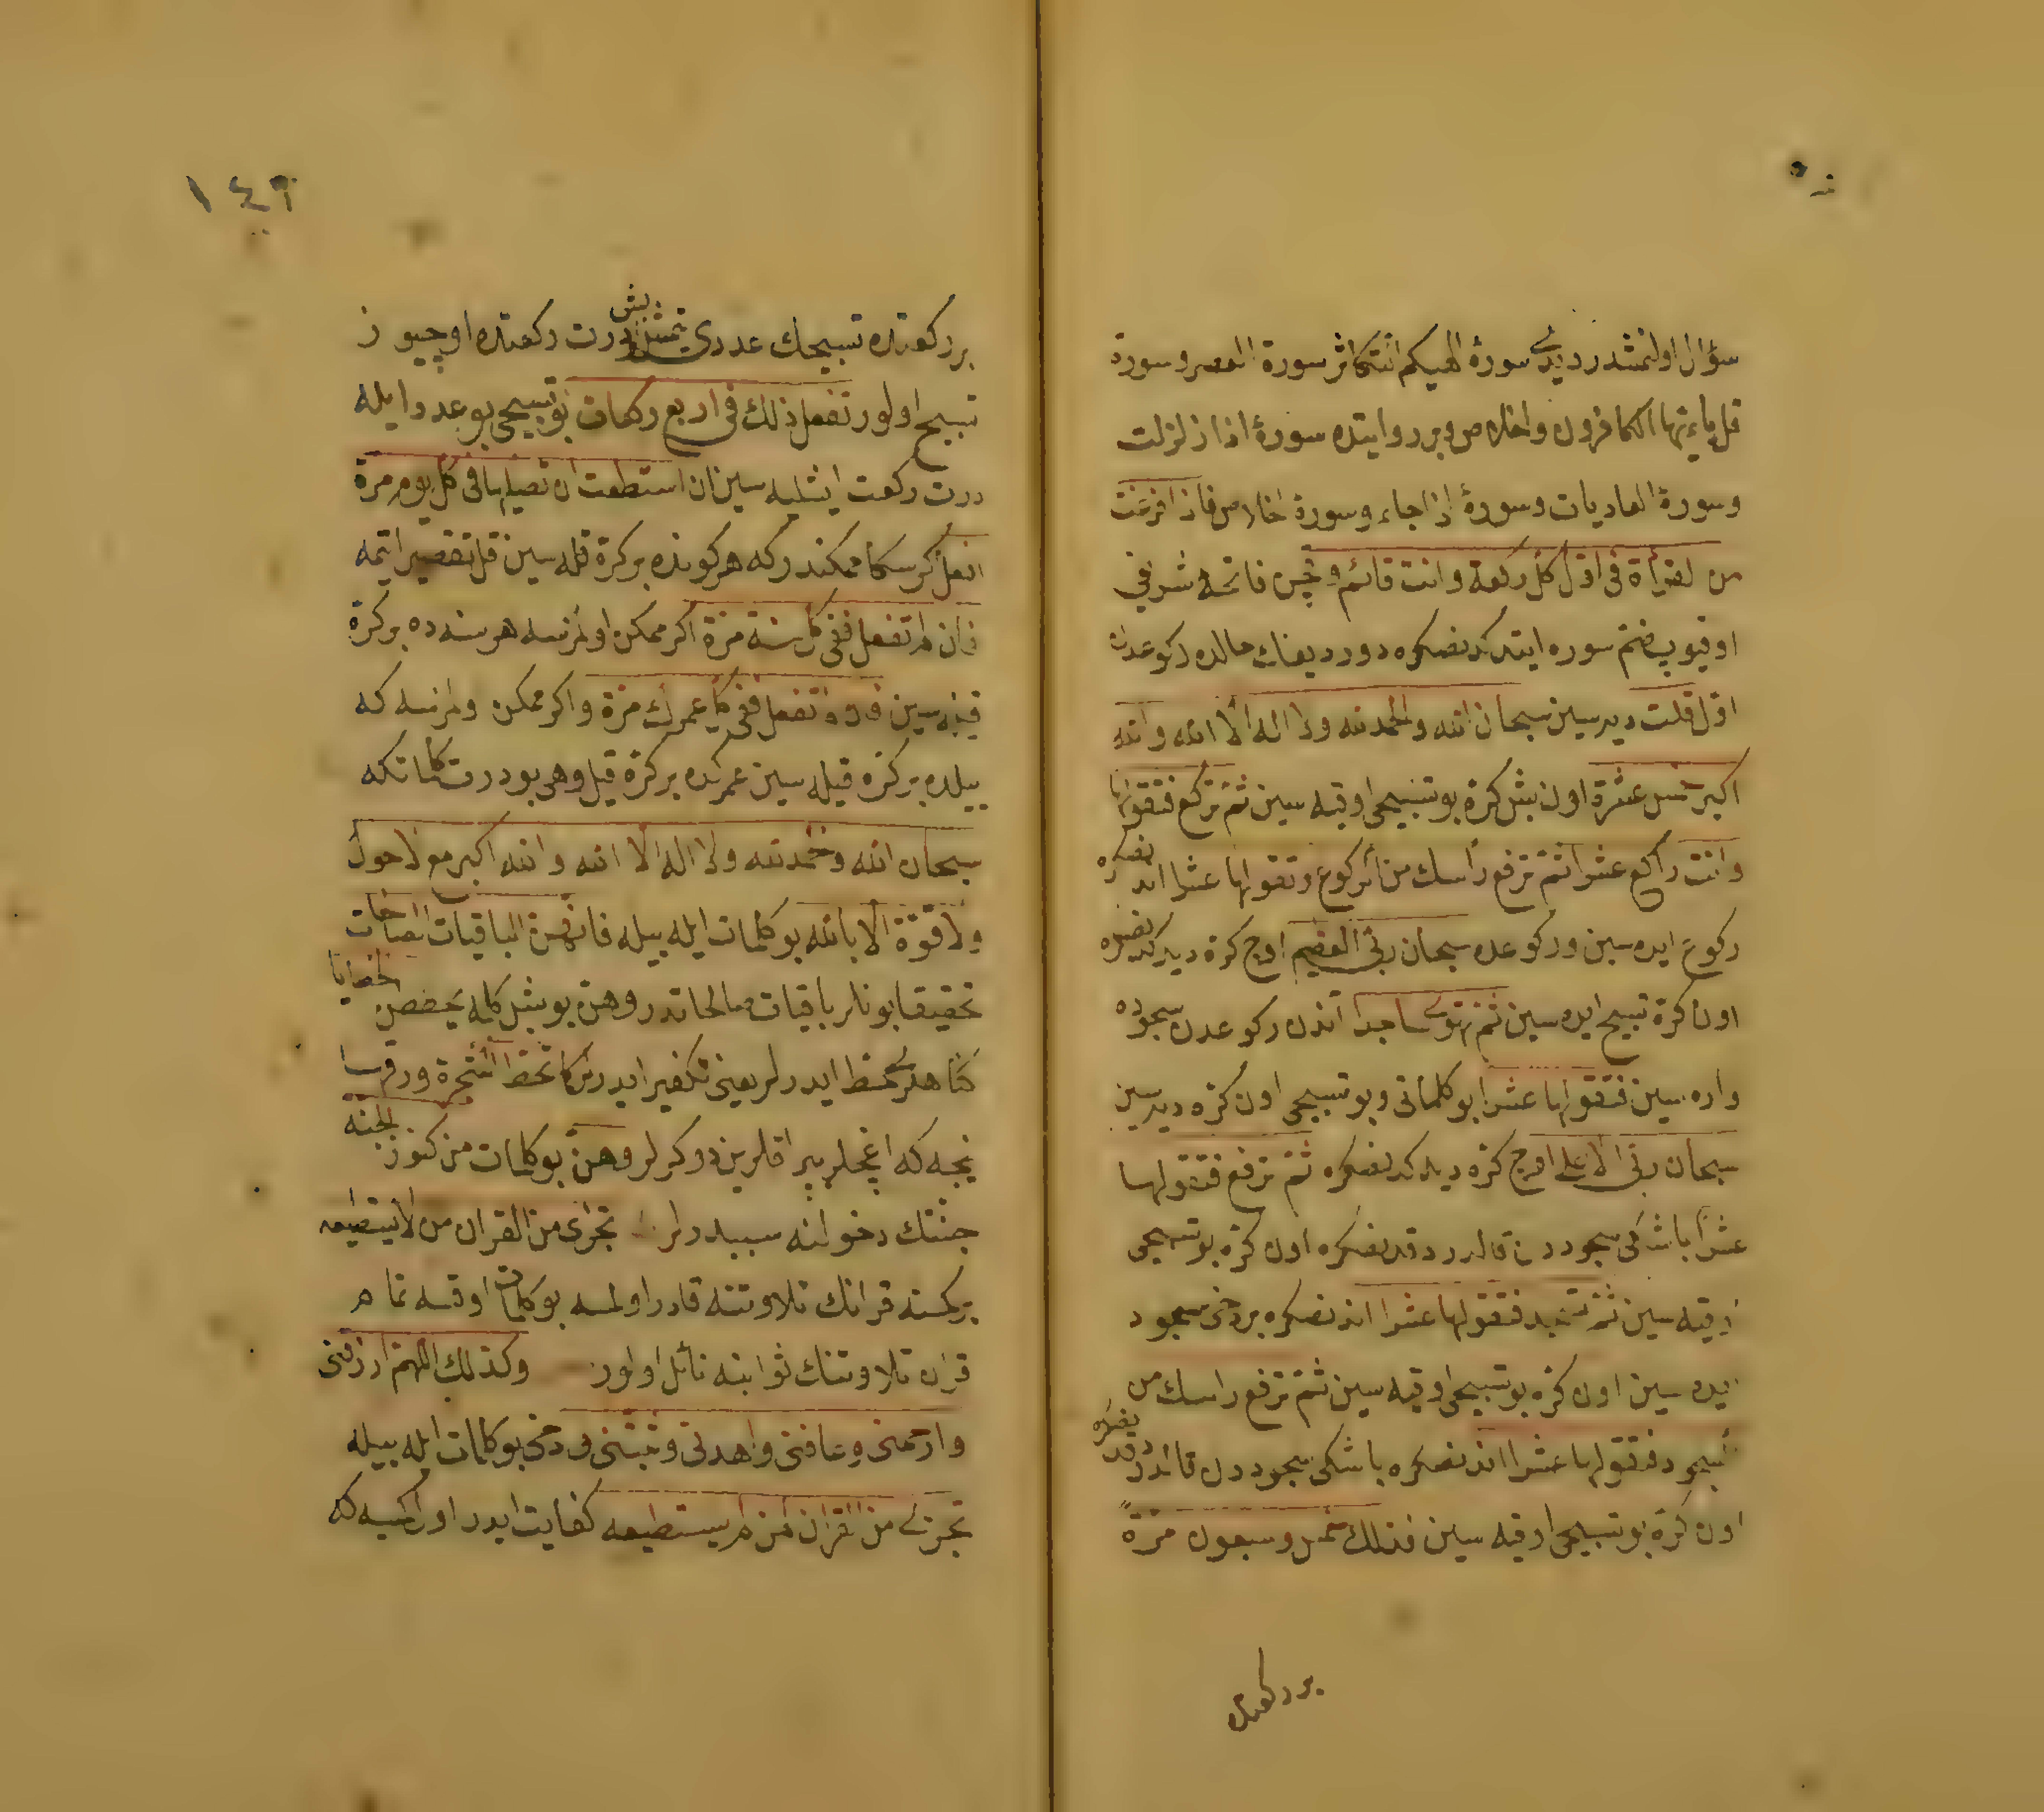 سؤال اولنمشدر ديدى سورۀ الهيكم التكاثر سورة العصر وسورة
قل يا ايها الكافرون واخلاص وبر روايتده سورۀ اذا زلزلت
وسورة العاديات وسورۀ اذا جاء وسورة اخلاص فاذا فرغت
من القرأة فى اول كل ركعة وانت قائم وچن فاتحۀ شريفى
اوقيوب ضم سوره ايتدكدنصكره دورديغك حالده ركوعدن
اول قلت ديرسين سبحان الله والحمد لله ولا اله الا الله والله
اكبر خمس عشرة اون بش كرة بو تسبيحى اوقيه سين ثم تركع فتقولها
وانت راكع عشرا ثم ترفع رأسك من الركوع وتقولها عشرا اندنصكره
ركوع ايده سين وركوعده سبحان ربى العظيم اوچ كرة ديدكدنصكره
اون كرة تسبيح ايده سين ثم تهوى ساجدا اندن ركوعدن سجوده
واره سين فتقولها عشرا بو كلماتى وبو تسبيحى اون كره ديرسين
سبحان ربى الاعلى اوچ كره ديدكدنصكره ثم ترفع فتقولها
عشرا باشكى سجوددن قالدردقدنصكره اون كره بو تسبيحى
اوقيه سين ثم تسجد فتقولها عشرا اندنصكره بر دخى سجود
ايده سين اون كره بو تسبيحى اوقيه سين ثم ترفع راسك من
السجود فتقولها عشرا اندنصكره باشكى سجوددن قالدردقدنصكره
اون كرة بو تسبيحى اوقيه سين فذلك خمس وسبعون مرة
بر ركعتده
١٤٦
بر ركعتده تسبيحك عددى يتمش بش درت ركعتده اوچيوز
تسبيح اولور تفعل ذلك فى اربع ركعات بو تسبيحى بو عدد ايله
درت ركعت ايشليه سين ان استطعت ان تصليها فى كل يوم مرة
افعل كر سكا ممكندر كه هر كونده بر كرة قله سين قل تقصير ايتمه
فان لم تفعل ففى كل سنة مرة اكر ممكن اولمزسه هر سنه ده بر كرة
قيله سين فان لم تفعل ففى كل عمرك مرة واكر ممكن ولمزسه كه
ييلده بر كره قيله سين عمركده بر كرة قيل وهى بو درت كلماتكه
سبحان الله والحمد لله ولا اله الا الله والله اكبر مع لا حول
ولا قوة الا بالله بو كلمات ايله بيله فانهن الباقيات الصالحات
تحقيقا بونلر باقيات صالحاتدر وهن بو بش كلمه يحططن الخطايا
كناهلرى حط ايدرلر يعنى تكفير ايدرلر كما تحط الشجرة ورقها
نيجه كه اغجلر يپراقلرين دوكرلر وهن بو كلمات من كنوز الجنة
جنتك دخولنه سببدرلر تجزى من القران من لا يستطيعه
بر كمسنه قرانك تلاوتنه قادر اولمسه بو كلمات اوقسه تمام
قران تلاوتنك ثوابنه نائل اولور وكذلك اللهم ارزقنى
وارحمنى وعافنى واهدنى وثبتنى ودخى بو كلمات ايله بيله
تجزى من القران لمن لم يستطيعه كفايت ايدر اول كمسيه كه